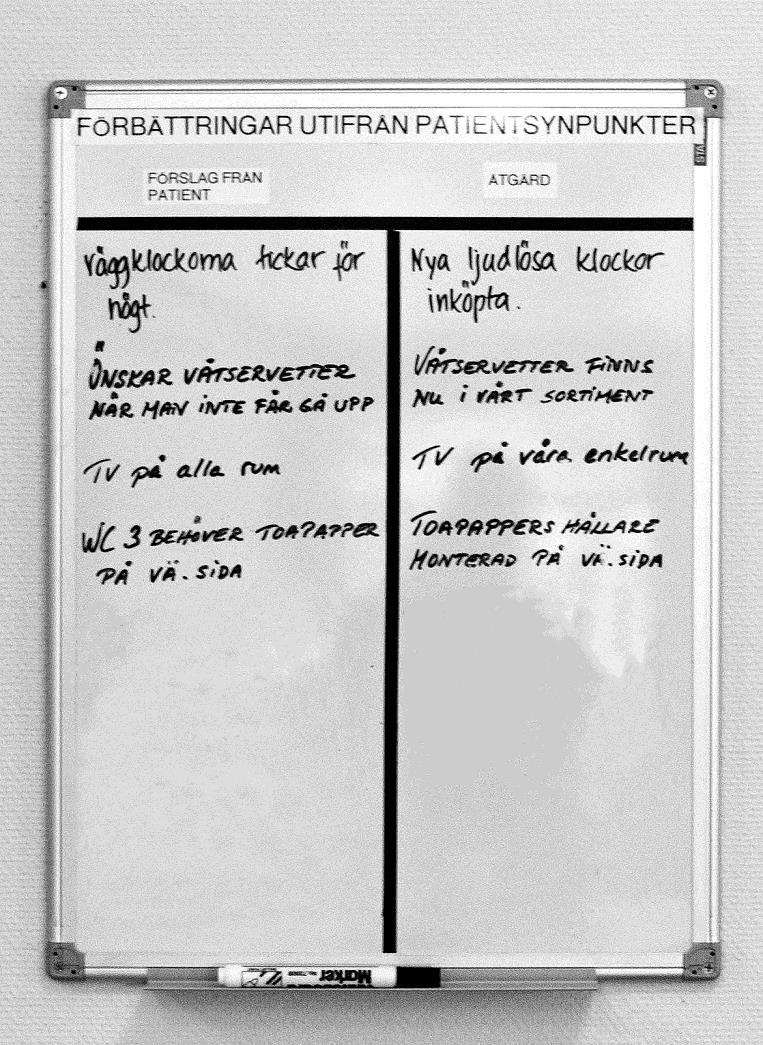 FÖRBÄTTRINGAR UTIFRÅN PATIENTSYNPUNKTER
STA
FÖRSLAG FRÅN
PATIENT
ÅTGÄRD
Väggklockorna tickar för
högt.
ÖNSKAR VÅTSERVETTER
NÄR MAN INTE FÅR GÅ UPP
TV på alla rum
WC 3 BEHÖVER TOAPAPPER
PÅ VÄ. SIDA
Nya ljudlösa klockor
inköpta.
VÅTSERVETTER FINNS
NU I VÅRT SORTIMENT
TV på våra enkelrum
TOAPAPPERS HÅLLARE
MONTERAD PÅ VÄ. SIDA
Marker